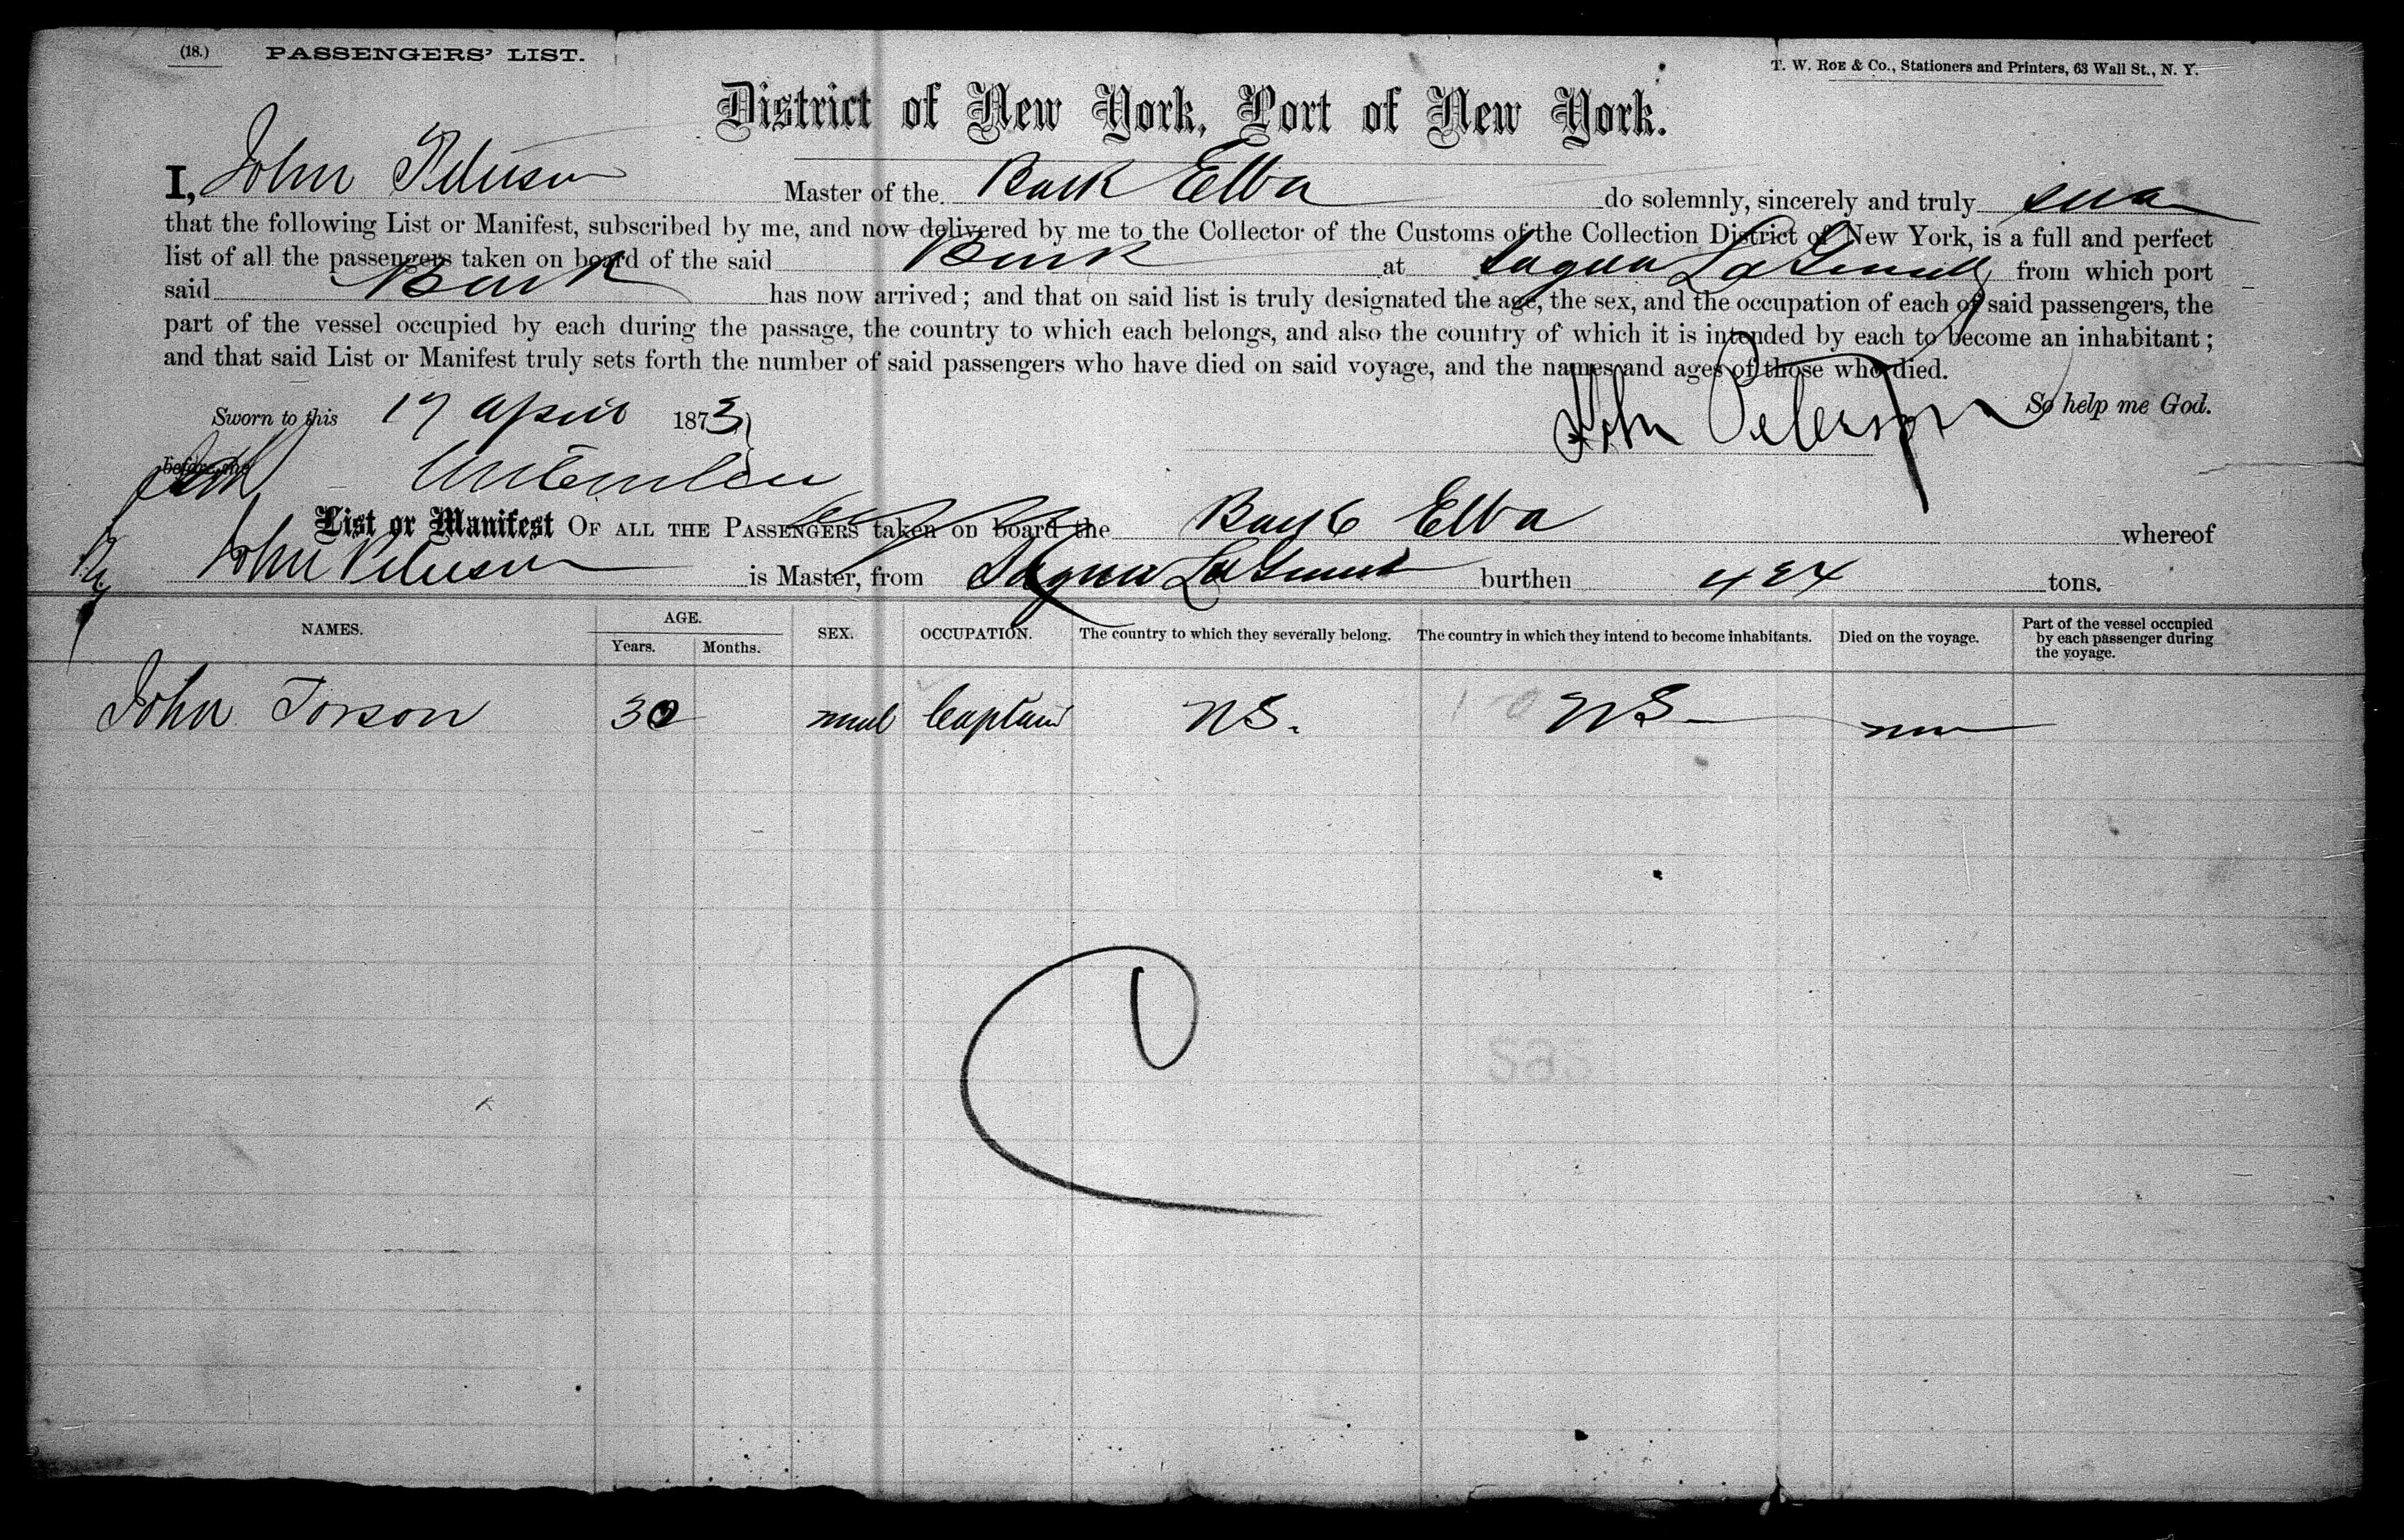 (18.) PASSENGERS' LIST.
T. W. ROE & Co., Stationers and Printers, 63 Wall St., N. Y.
District of New York, Port of New York.
I, John Peterson Master of the Bark Elba do solemnly, sincerely and truly swear
that the following List or Manifest, subscribed by me, and now delivered by me to the Collector of the Customs of the Collection District of New York, is a full and perfect
list of all the passengers taken on board of the said Bark at Sagua La Grande from which port
said Bark has now arrived; and that on said list is truly designated the age, the sex, and the occupation of each of said passengers, the
part of the vessel occupied by each during the passage, the country to which each belongs, and also the country of which it is intended by each to become an inhabitant;
and that said List or Manifest truly sets forth the number of said passengers who have died on said voyage, and the names and ages of those who died.
Sworn to this 17 April 1873
So help me God.
John Peterson
before me
List or Manifest OF ALL THE PASSENGERS taken on board the Bark Elba whereof
John Peterson is Master, from Sagua La Grande burthen 424 tons.
NAMES. AGE. Years. Months. SEX. OCCUPATION. The country to which they severally belong. The country in which they intend to become inhabitants. Died on the voyage. Part of the vessel occupied by each passenger during the voyage.
John Torson 30 Captain N S. N S
C